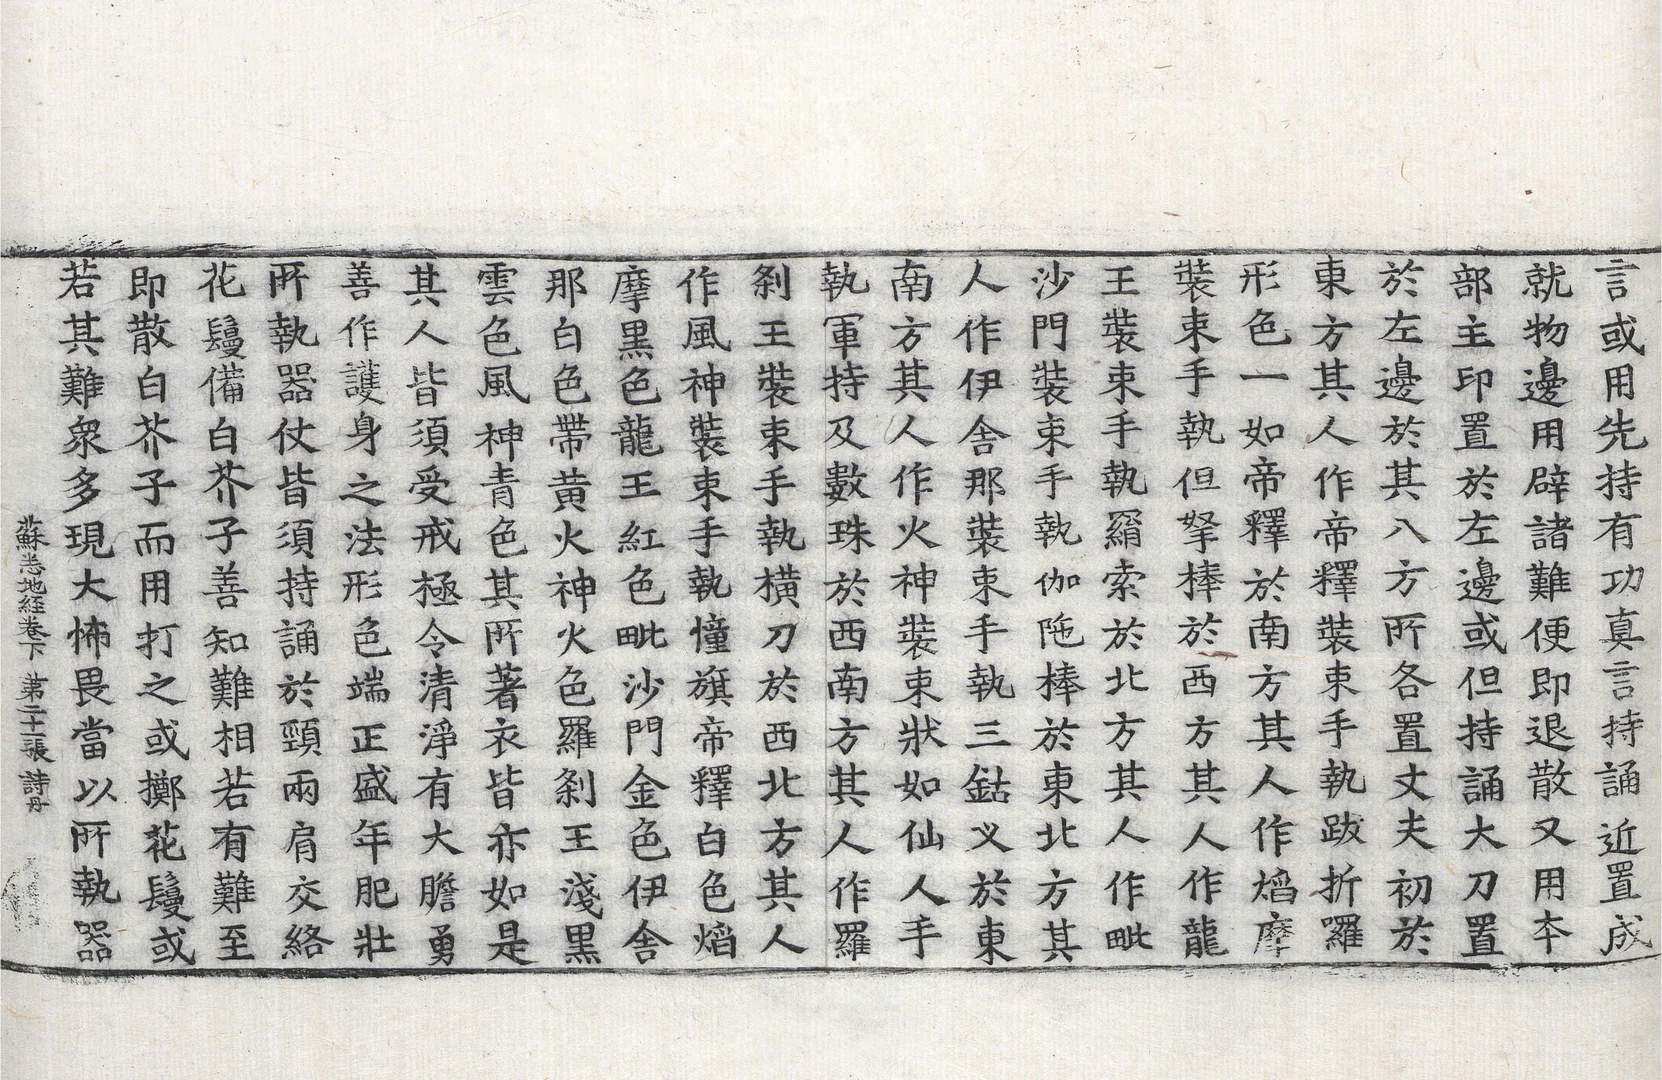 言或用先持有功真言持誦近置成
就物邊用辟諸難便即退散又用本
部主印置於左邊或但持誦大刀置
於左邊於其八方所各置丈夫初於
東方其人作帝釋裝束手執跋折羅
形色一如帝釋於南方其人作焰摩
裝束手執但拏棒於西方其人作龍
王裝束手執羂索於北方其人作毗
沙門裝束手執伽陁棒於東北方其
人作伊舍那裝束手執三鈷义於東
南方其人作火神裝束狀如仙人手
執軍持及數珠於西南方其人作羅
剎王裝束手執橫刀於西北方其人
作風神裝束手執幢旗帝釋白色焰
摩黑色龍王紅色毗沙門金色伊舍
那白色帶黃火神火色羅剎王淺黑
雲色風神青色其所著衣皆亦如是
其人皆須受戒極令清淨有大膽勇
善作護身之法形色端正盛年肥壯
所執器仗皆須持誦於頸兩肩交絡
花鬘備白芥子善知難相若有難至
即散白芥子而用打之或擲花鬘或
若其難衆多現大怖畏當以所執器
蘇悉地經卷下 第二十一張 詩丹